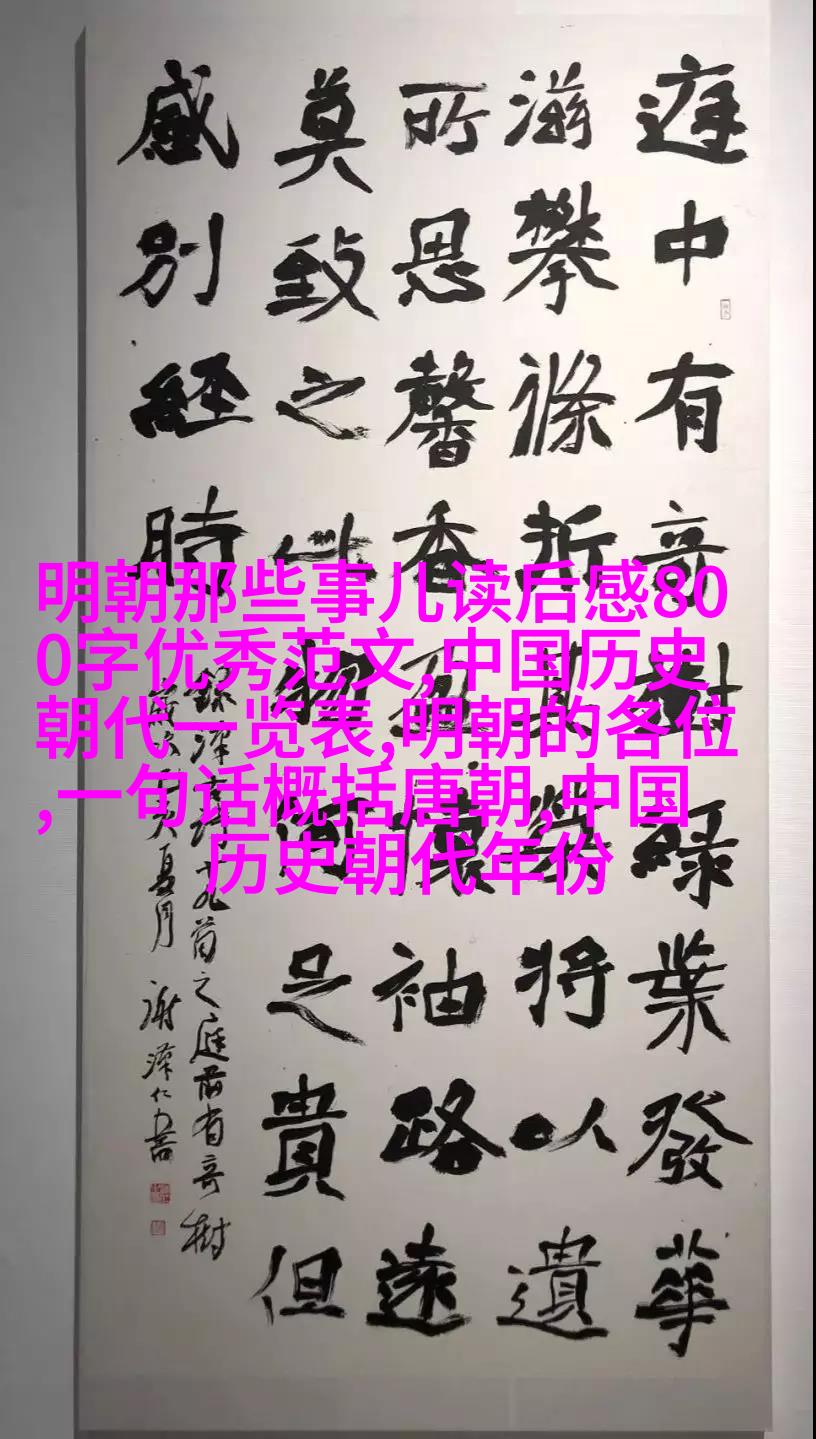 明朝那些事儿读后感80
0字优秀范文,中国历史
朝代一览表,明朝的各位
,一句话概括唐朝,中国
历史朝代年份
庭中有奇樹緑葉發華
滋攀條折其榮將以遺
所思馨香盈懷袖路遠
莫致之此物何足貴但
感別經時
録漢古詩十九首之庭前有奇樹
夏月 謝澤仁書